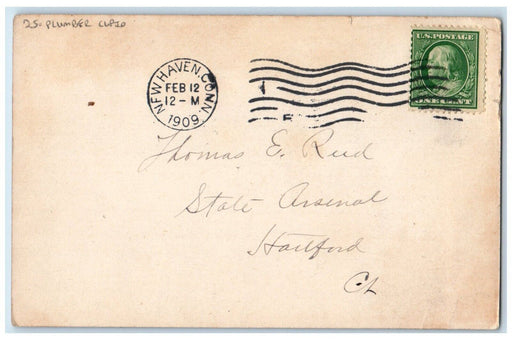 25- PLUMBER CUPID
U.S. POSTAGE
ONE CENT
NEW HAVEN, CONN.
FEB 12
12-M
1909
Thomas E. Reid
State Arsenal
Hartford
Ct